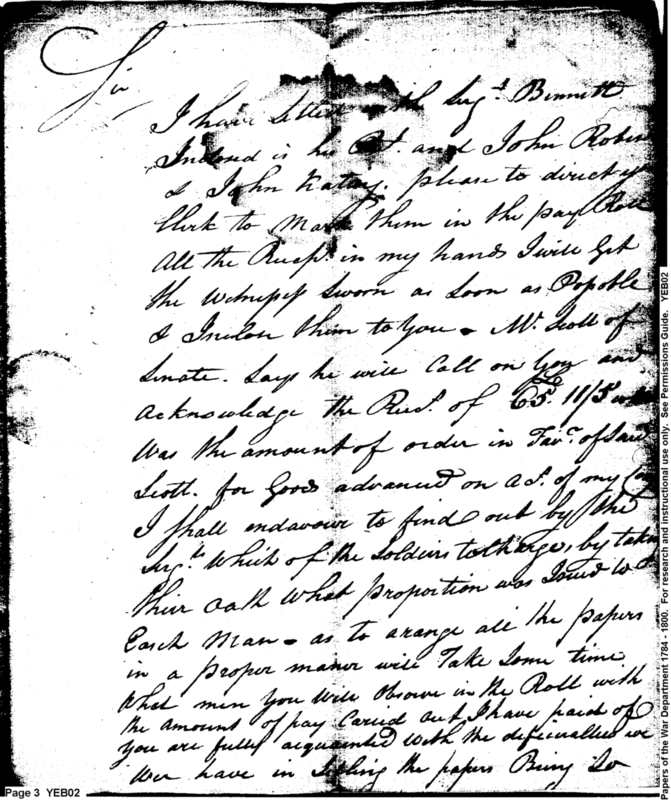 Sir
I have Settled with Sergt. Bennett
Inclosed is his Rt. and John Rober
& John please to direct yr
Clerk to Mark them in the pay Roll
All the Recpts. in my hands I will Get
the Witnesses Sworn as Soon as Possible
& Inclose them to You - Mr. Scott of
Senate. Says he will Call on You and
acknowledge the Rect. of 11/5
Was the amount of order in Favr. of Said
Scott. for Goods advanced on act. of my
I shall endavour to find out by the
Sergts. Which of the Soldiers to Charge, by taking
thier Oath What proportion was Issued to
Earch Man - as to arange all the papers
in a proper maner will Take Some time
What men You Will Observe in the Roll with
the amounts of pay Caried out, I have paid of
You are fully acquainted With the dificualties we
Wer have in Setling the papers Being So
Page 3 YEB02
Papers of the War Department 1784 - 1800. For research and instructional use only. See Permissions Guide. YEB02